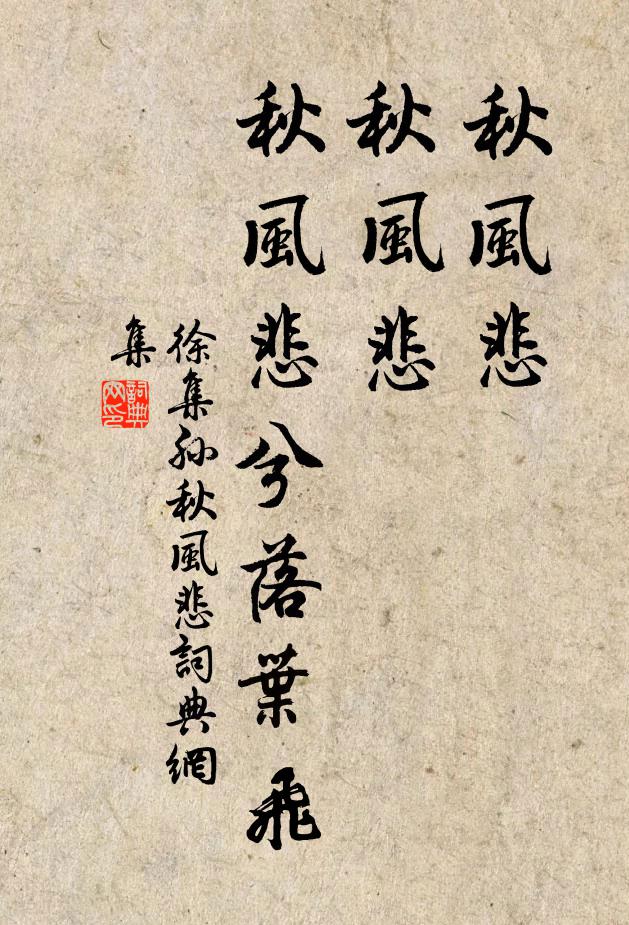 秋風悲
秋風悲
秋風悲兮落葉飛
徐集孫秋風悲詞典網
集
詞典
網印